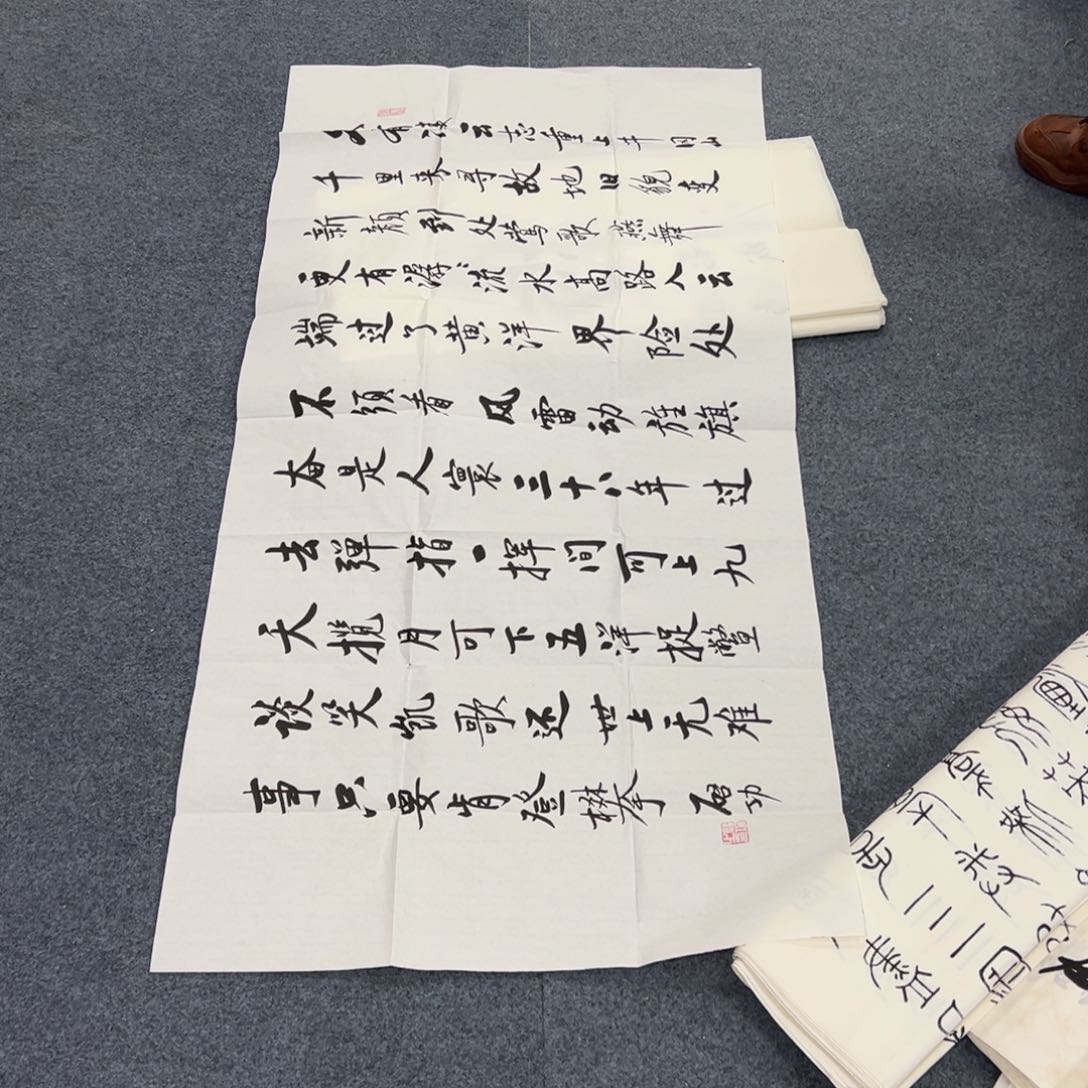 久有凌云志重上井冈山
千里来寻故地旧貌变
新颜到处莺歌燕舞
更有潺〻流水高路入云
端过了黄洋界险处
不须看风雷动旌旗
奋是人寰三十八年过
去彈指一挥间可上九
天揽月可下五洋捉鳖
谈笑凯歌还世上无难
事只要肯登攀 启功